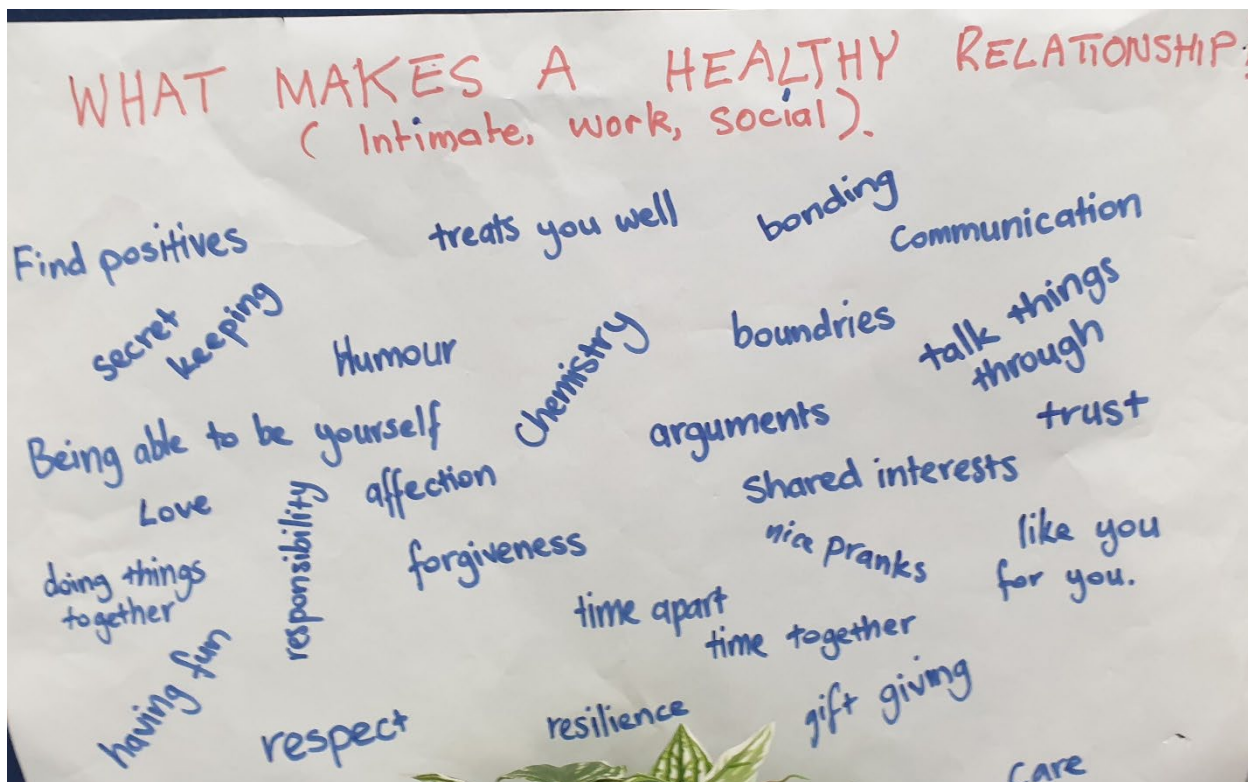 WHAT MAKES A HEALTHY RELATIONSHIP?
( Intimate, work, social ).
Find positives
treats you well
bonding
communication
secret
keeping
Humour
chemistry
boundries
talk things
through
Being able to be yourself
arguments
trust
Love
responsibility
affection
shared interests
doing things
together
forgiveness
nice pranks
like you
for you.
time apart
time together
having fun
respect
resilience
gift giving
care